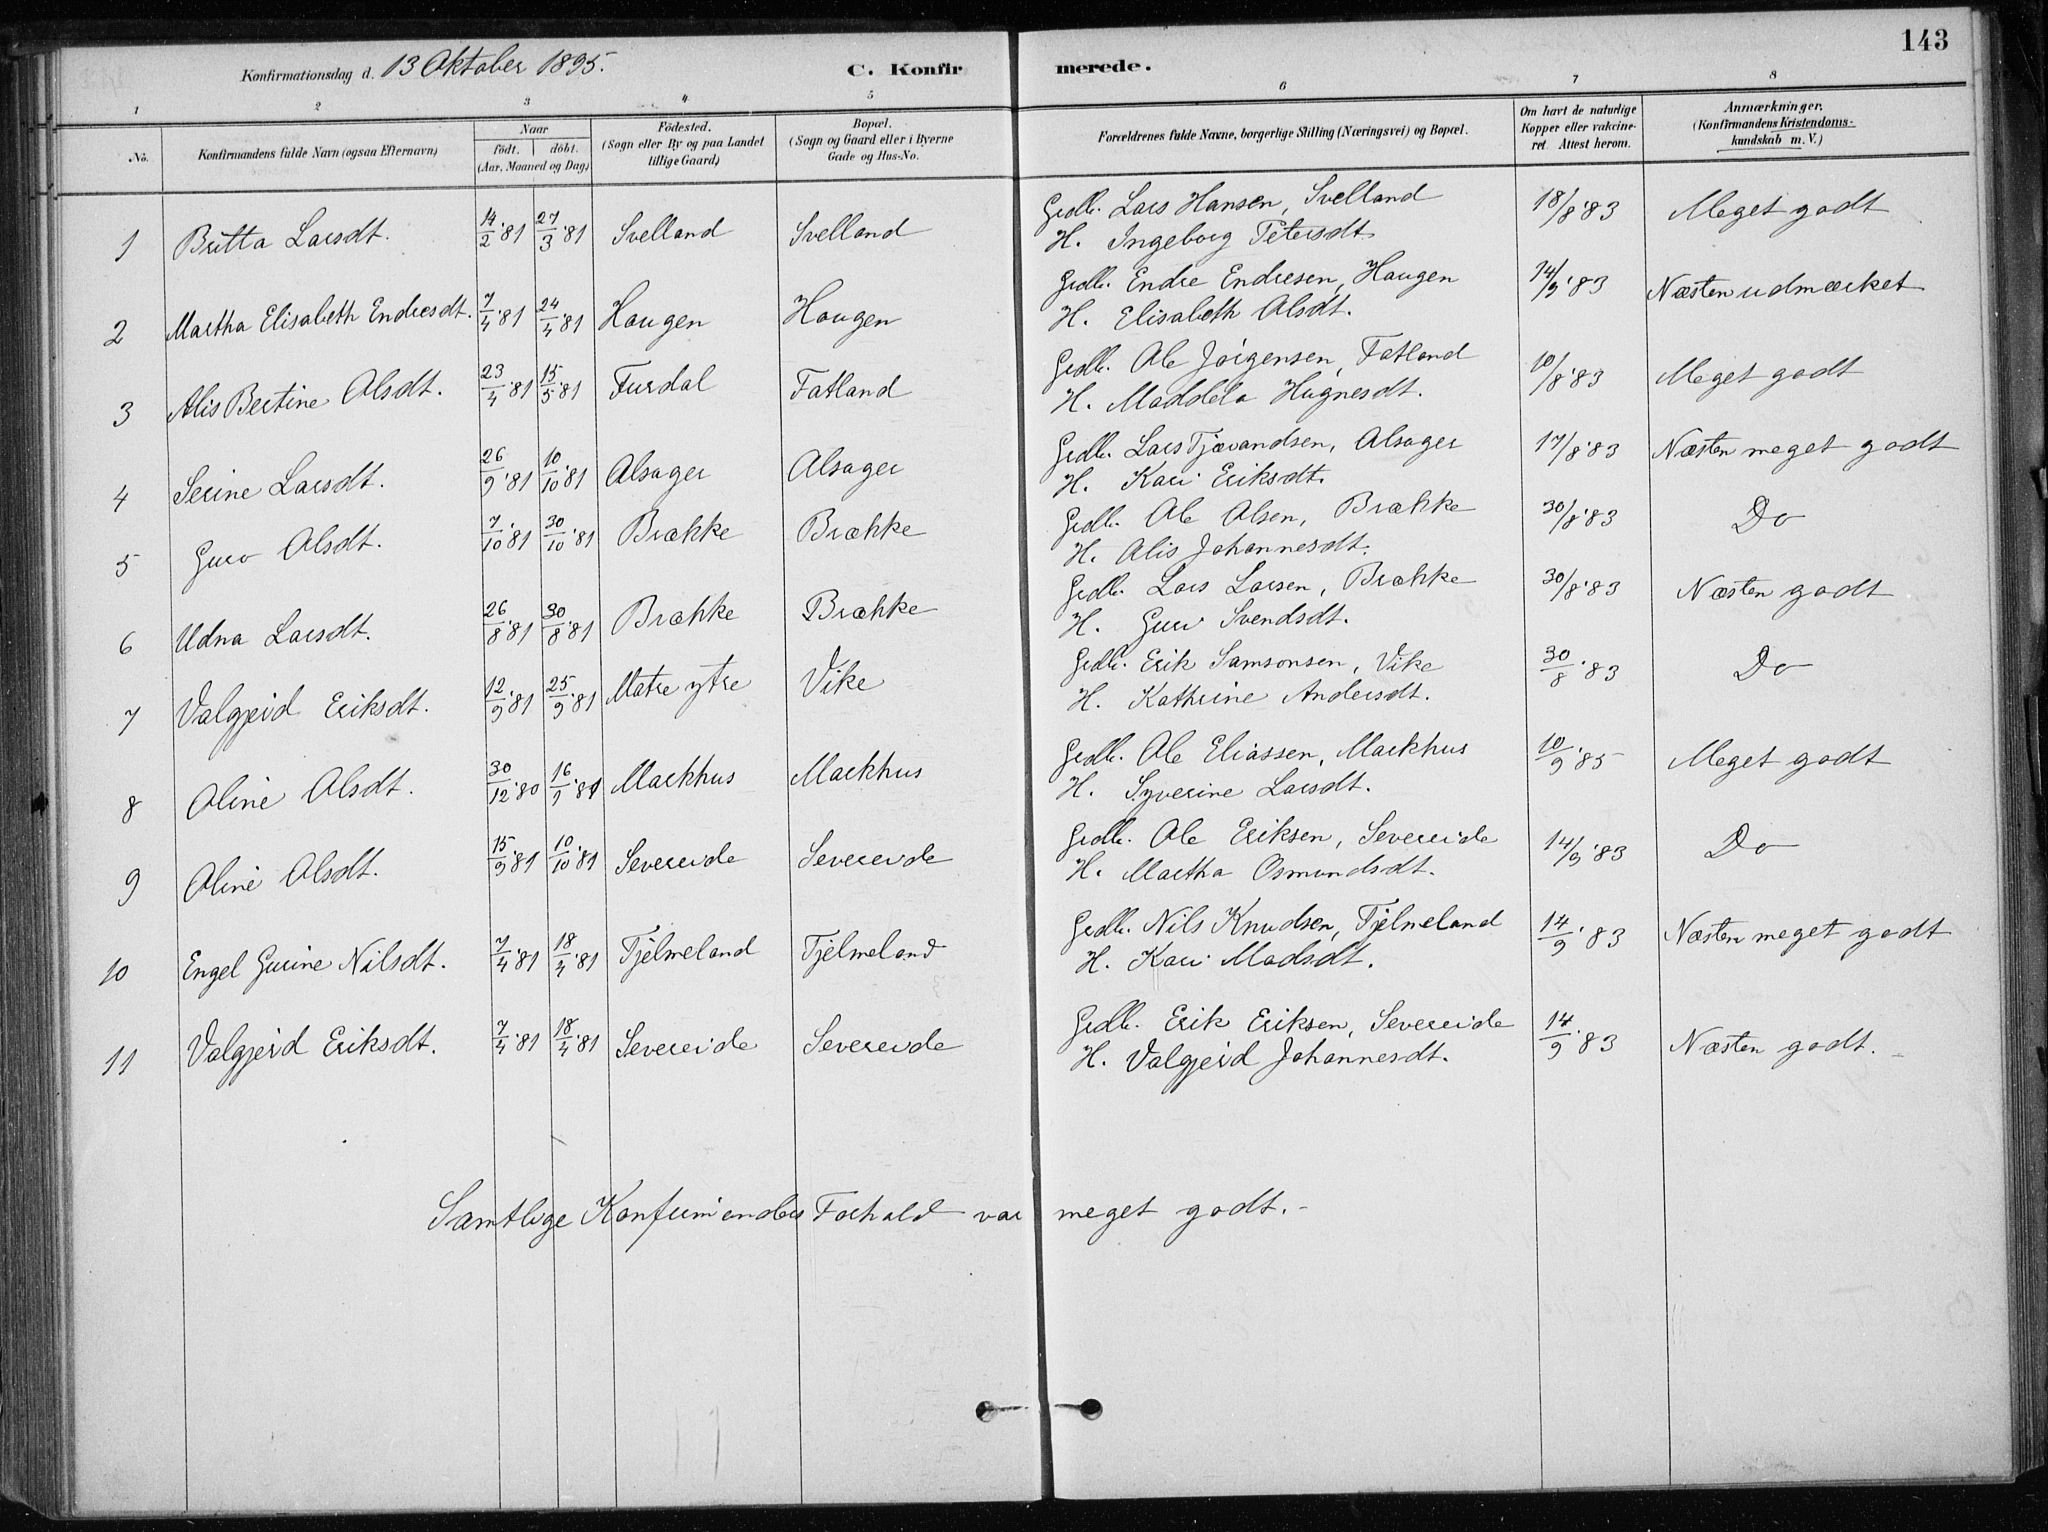 143
Konfirmationsdag d. 13 Oktober 1895. C. Konfirmerede.
1 2 3 4 5 6 7 8
No. Konfirmandens fulde Navn (ogsaa Efternavn) Naar födt. döbt. (Aar, Maaned og Dag) Födested. (Sogn eller By og paa Landet tillige Gaard) Bopæl. (Sogn og Gaard eller i Byerne Gade og Hus-No. Forældrenes fulde Navne, borgerlige Stilling (Næringsvei) og Bopæl. Om havt de naturlige Kopper eller vakcineret. Attest herom. Anmærkninger. (Konfirmandens Kristendomskundskab m. V.)
1 Britta Larsdt. 14/2 '81 27/3 '81 Svelland Svelland Grdbr. Lars Hansen, Svelland 18/8 '83 Meget godt
H. Ingeborg Petersdt
2 Martha Elisabeth Endresdt. 7/4 '81 24/4 '81 Haugen Haugen Grdbr. Endre Endresen, Haugen 14/9 '83 Næsten udmærket
H. Elisabeth Olsdt.
3 Alis Bertine Olsdt. 23/4 '81 15/5 '81 Furdal Fatland Grdbr. Ole Jørgensen, Fatland 10/8 '83 Meget godt
H. Maddela Hugnesdt.
4 Serine Larsdt. 26/9 '81 10/10 '81 Alsager Alsager Grdbr. Lars Tjærandsen, Alsager 17/8 '83 Næsten meget godt
H. Kari Eriksdt.
5 Guro Olsdt. 7/10 '81 30/10 '81 Brække Brække Grdbr. Ole Olsen, Brække 30/8 '83 Do
H. Alis Johannesdt.
6 Udna Larsdt. 26/8 '81 30/8 '81 Brække Brække Grdbr. Lars Larsen, Brække 30/8 '83 Næsten godt
H. Guro Svendsdt.
7 Valgjerd Eriksdt. 12/9 '81 25/9 '81 Matre ytre Vike Grdbr. Erik Samsonsen, Vike 30/8 '83 Do
H. Kathrine Andersdt.
8 Oline Olsdt. 30/12 '80 16/1 '81 Markhus Markhus Grdbr. Ole Eliassen, Markhus 10/9 '85 Meget godt
H. Syverine Larsdt.
9 Oline Olsdt. 15/9 '81 10/10 '81 Severeide Severeide Grdbr. Ole Eriksen, Severeide 14/9 '83 Do
H. Martha Osmundsdt.
10 Engel Gurine Nilsdt. 7/4 '81 18/4 '81 Tjelmeland Tjelmeland Grdbr. Nils Knudsen, Tjelmeland 14/9 '83 Næsten meget godt
H. Kari Madsdt.
11 Valgjerd Eriksdt. 7/4 '81 18/4 '81 Severeide Severeide Grdbr. Erik Eriksen, Severeide 14/9 '83 Næsten godt.
H. Valgjerd Johannesdt.
Samtlige Konfirmenders Forhold var meget godt.-